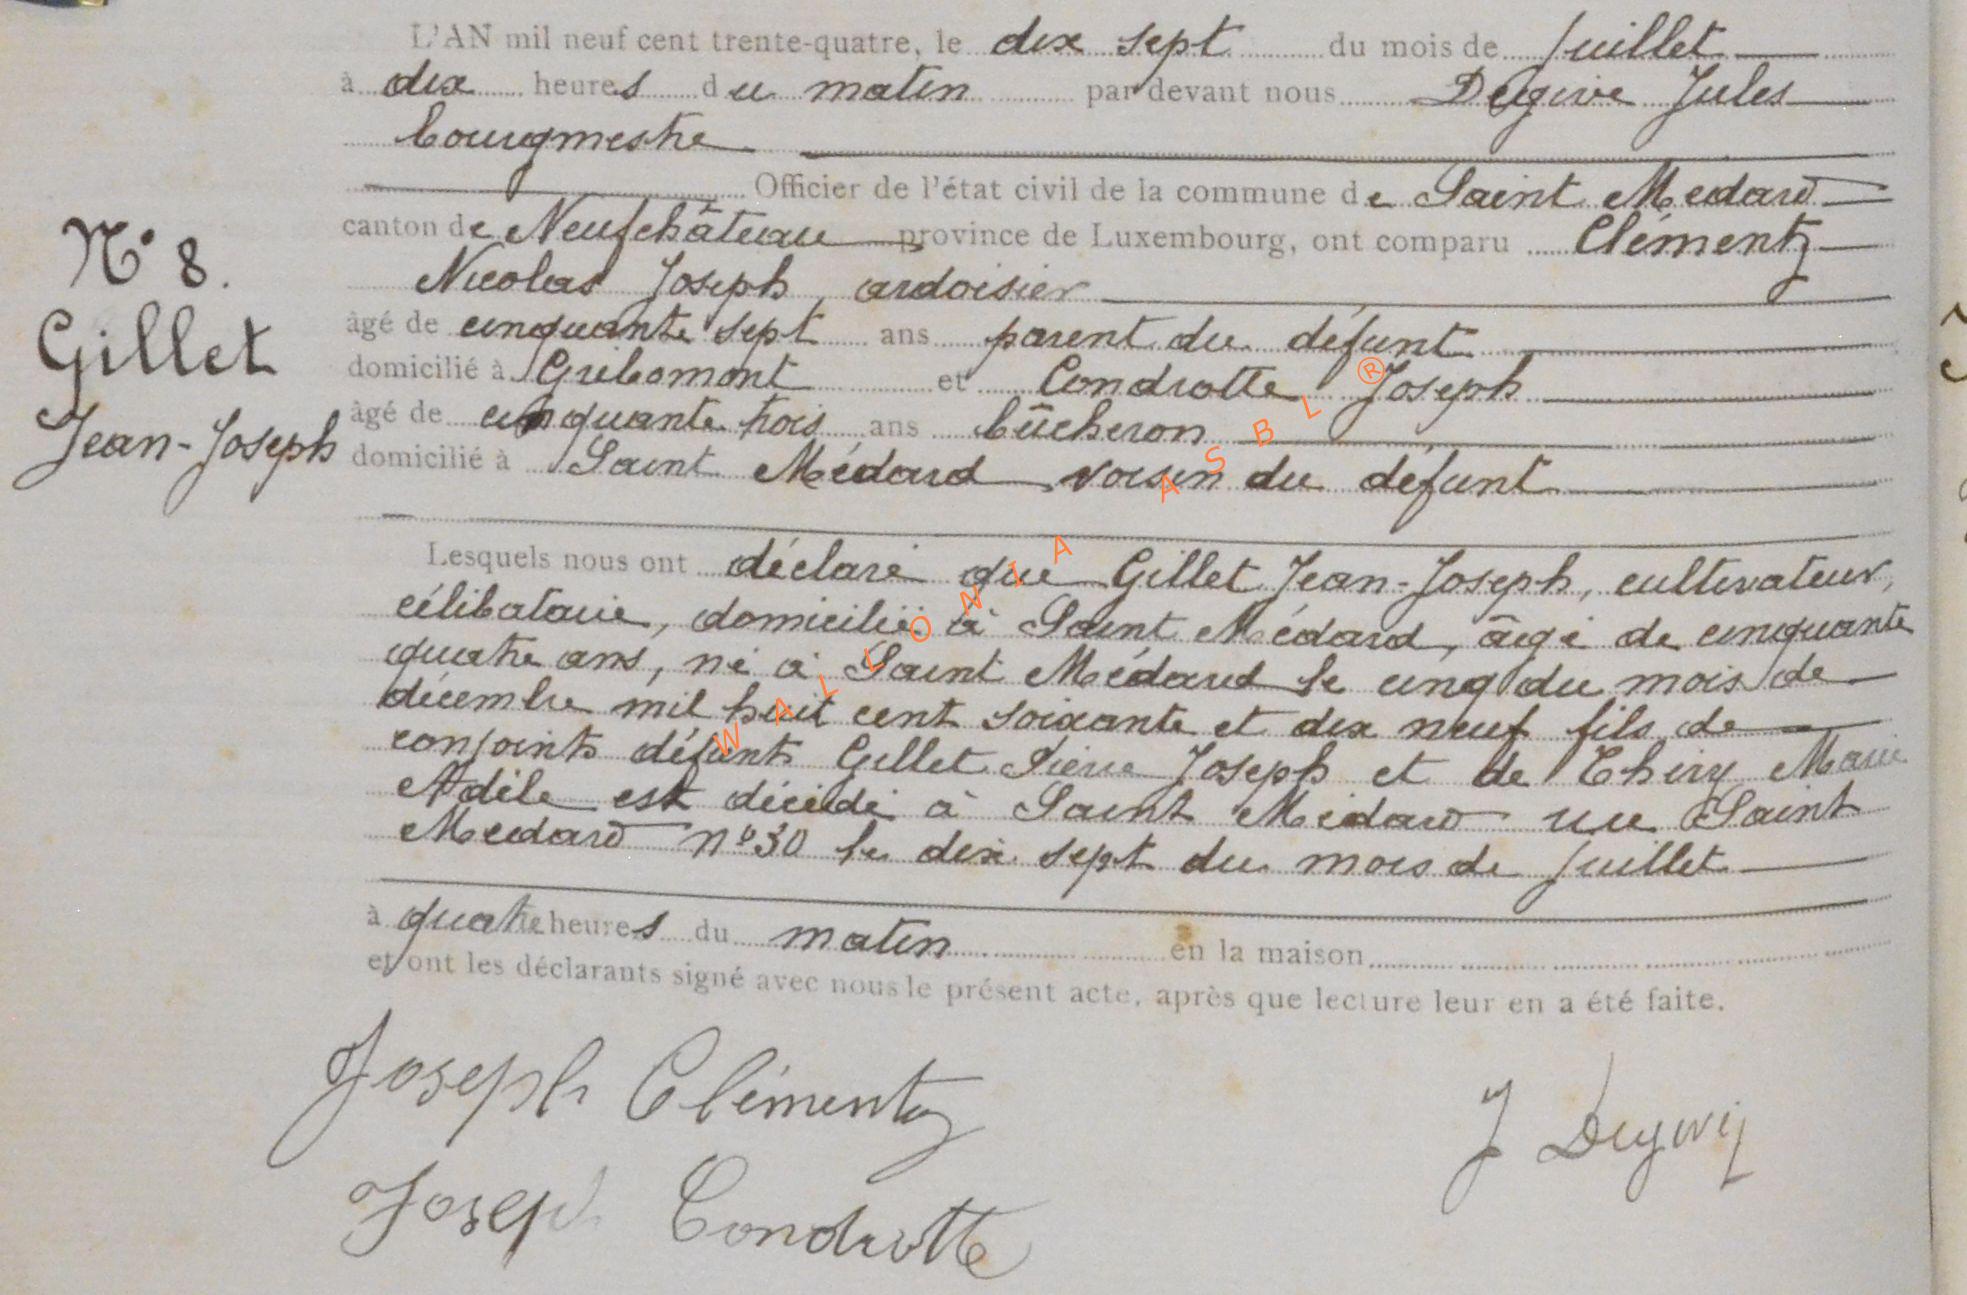 L'AN mil neuf cent trente-quatre, le dix sept du mois de Juillet
à dix heures du matin par devant nous Degive Jules
bourgmestre
Officier de l'état civil de la commune de Saint Medard
canton de Neufchâteau province de Luxembourg, ont comparu Clémentz
Nicolas Joseph, ardoisier
âgé de cinquante sept ans parent du défunt
domicilié à Gribomont et Condrotte Joseph
âgé de cinquante trois ans bûcheron
domicilié à Saint Médard voisin du défunt
N° 8.
Gillet
Jean-Joseph
Lesquels nous ont déclaré que Gillet Jean-Joseph, cultivateur,
célibataire, domicilié à Saint Médard, âgé de cinquante
quatre ans, né à Saint Médard le cinq du mois de
décembre mil huit cent soixante et dix neuf fils de
conjoints défunts Gillet Pierre Joseph et de Thiry Marie
Adèle est décédé à Saint Médard rue Saint
Medard n° 30 le dix sept du mois de Juillet
à quatre heures du matin en la maison
et ont les déclarants signé avec nous le présent acte, après que lecture leur en a été faite.
Joseph Clémentz
J Degive
Joseph Condrotte
WALLONIA ASBL ®